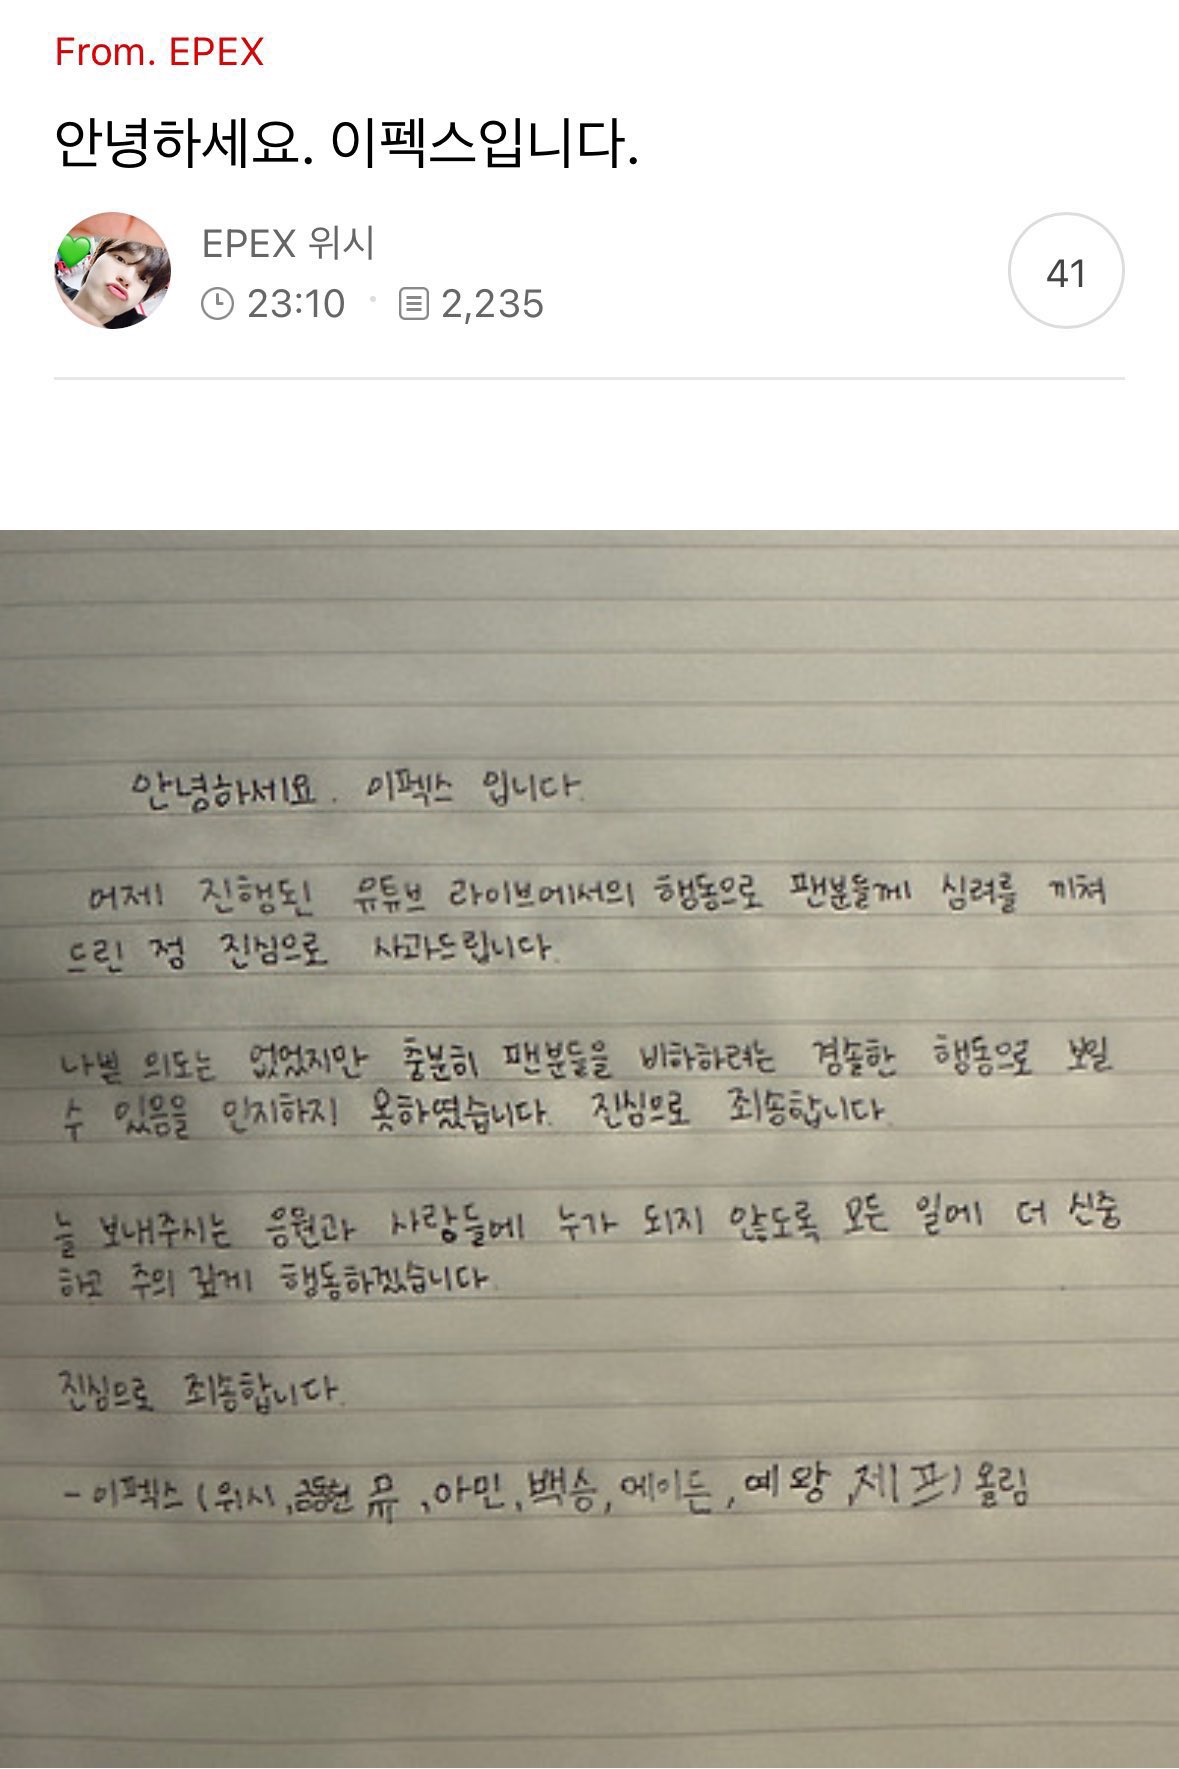 From. EPEX
안녕하세요. 이펙스입니다.
EPEX 위시
23:10 2,235
41
안녕하세요. 이펙스 입니다.
어제 진행된 유튜브 라이브에서의 행동으로 팬분들께 심려를 끼쳐
드린 점 진심으로 사과드립니다.
나쁜 의도는 없었지만 충분히 팬분들을 비하하려는 경솔한 행동으로 보일
수 있음을 인지하지 못하였습니다. 진심으로 죄송합니다.
늘 보내주시는 응원과 사랑들에 누가 되지 않도록 모든 일에 더 신중
하고 주의 깊게 행동하겠습니다.
진심으로 죄송합니다.
- 이펙스 (위시, 금동현 뮤, 아민, 백승, 에이든, 예왕, 제프) 올림